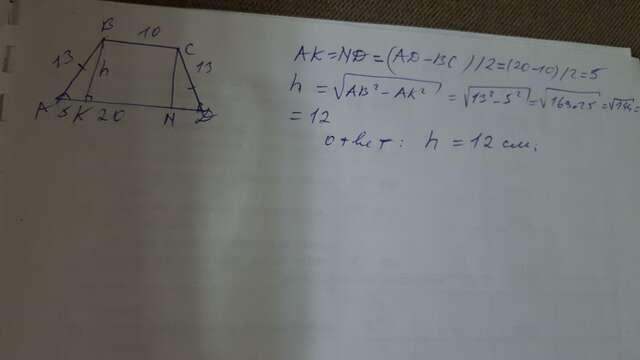 B 10 C
13 h 13
A 5 K 20 N D
AK=ND=(AD-BC)/2=(20-10)/2=5
h = √AB²-AK² = √13²-5² = √169-25 = √144 =
= 12
ответ: h = 12 см.